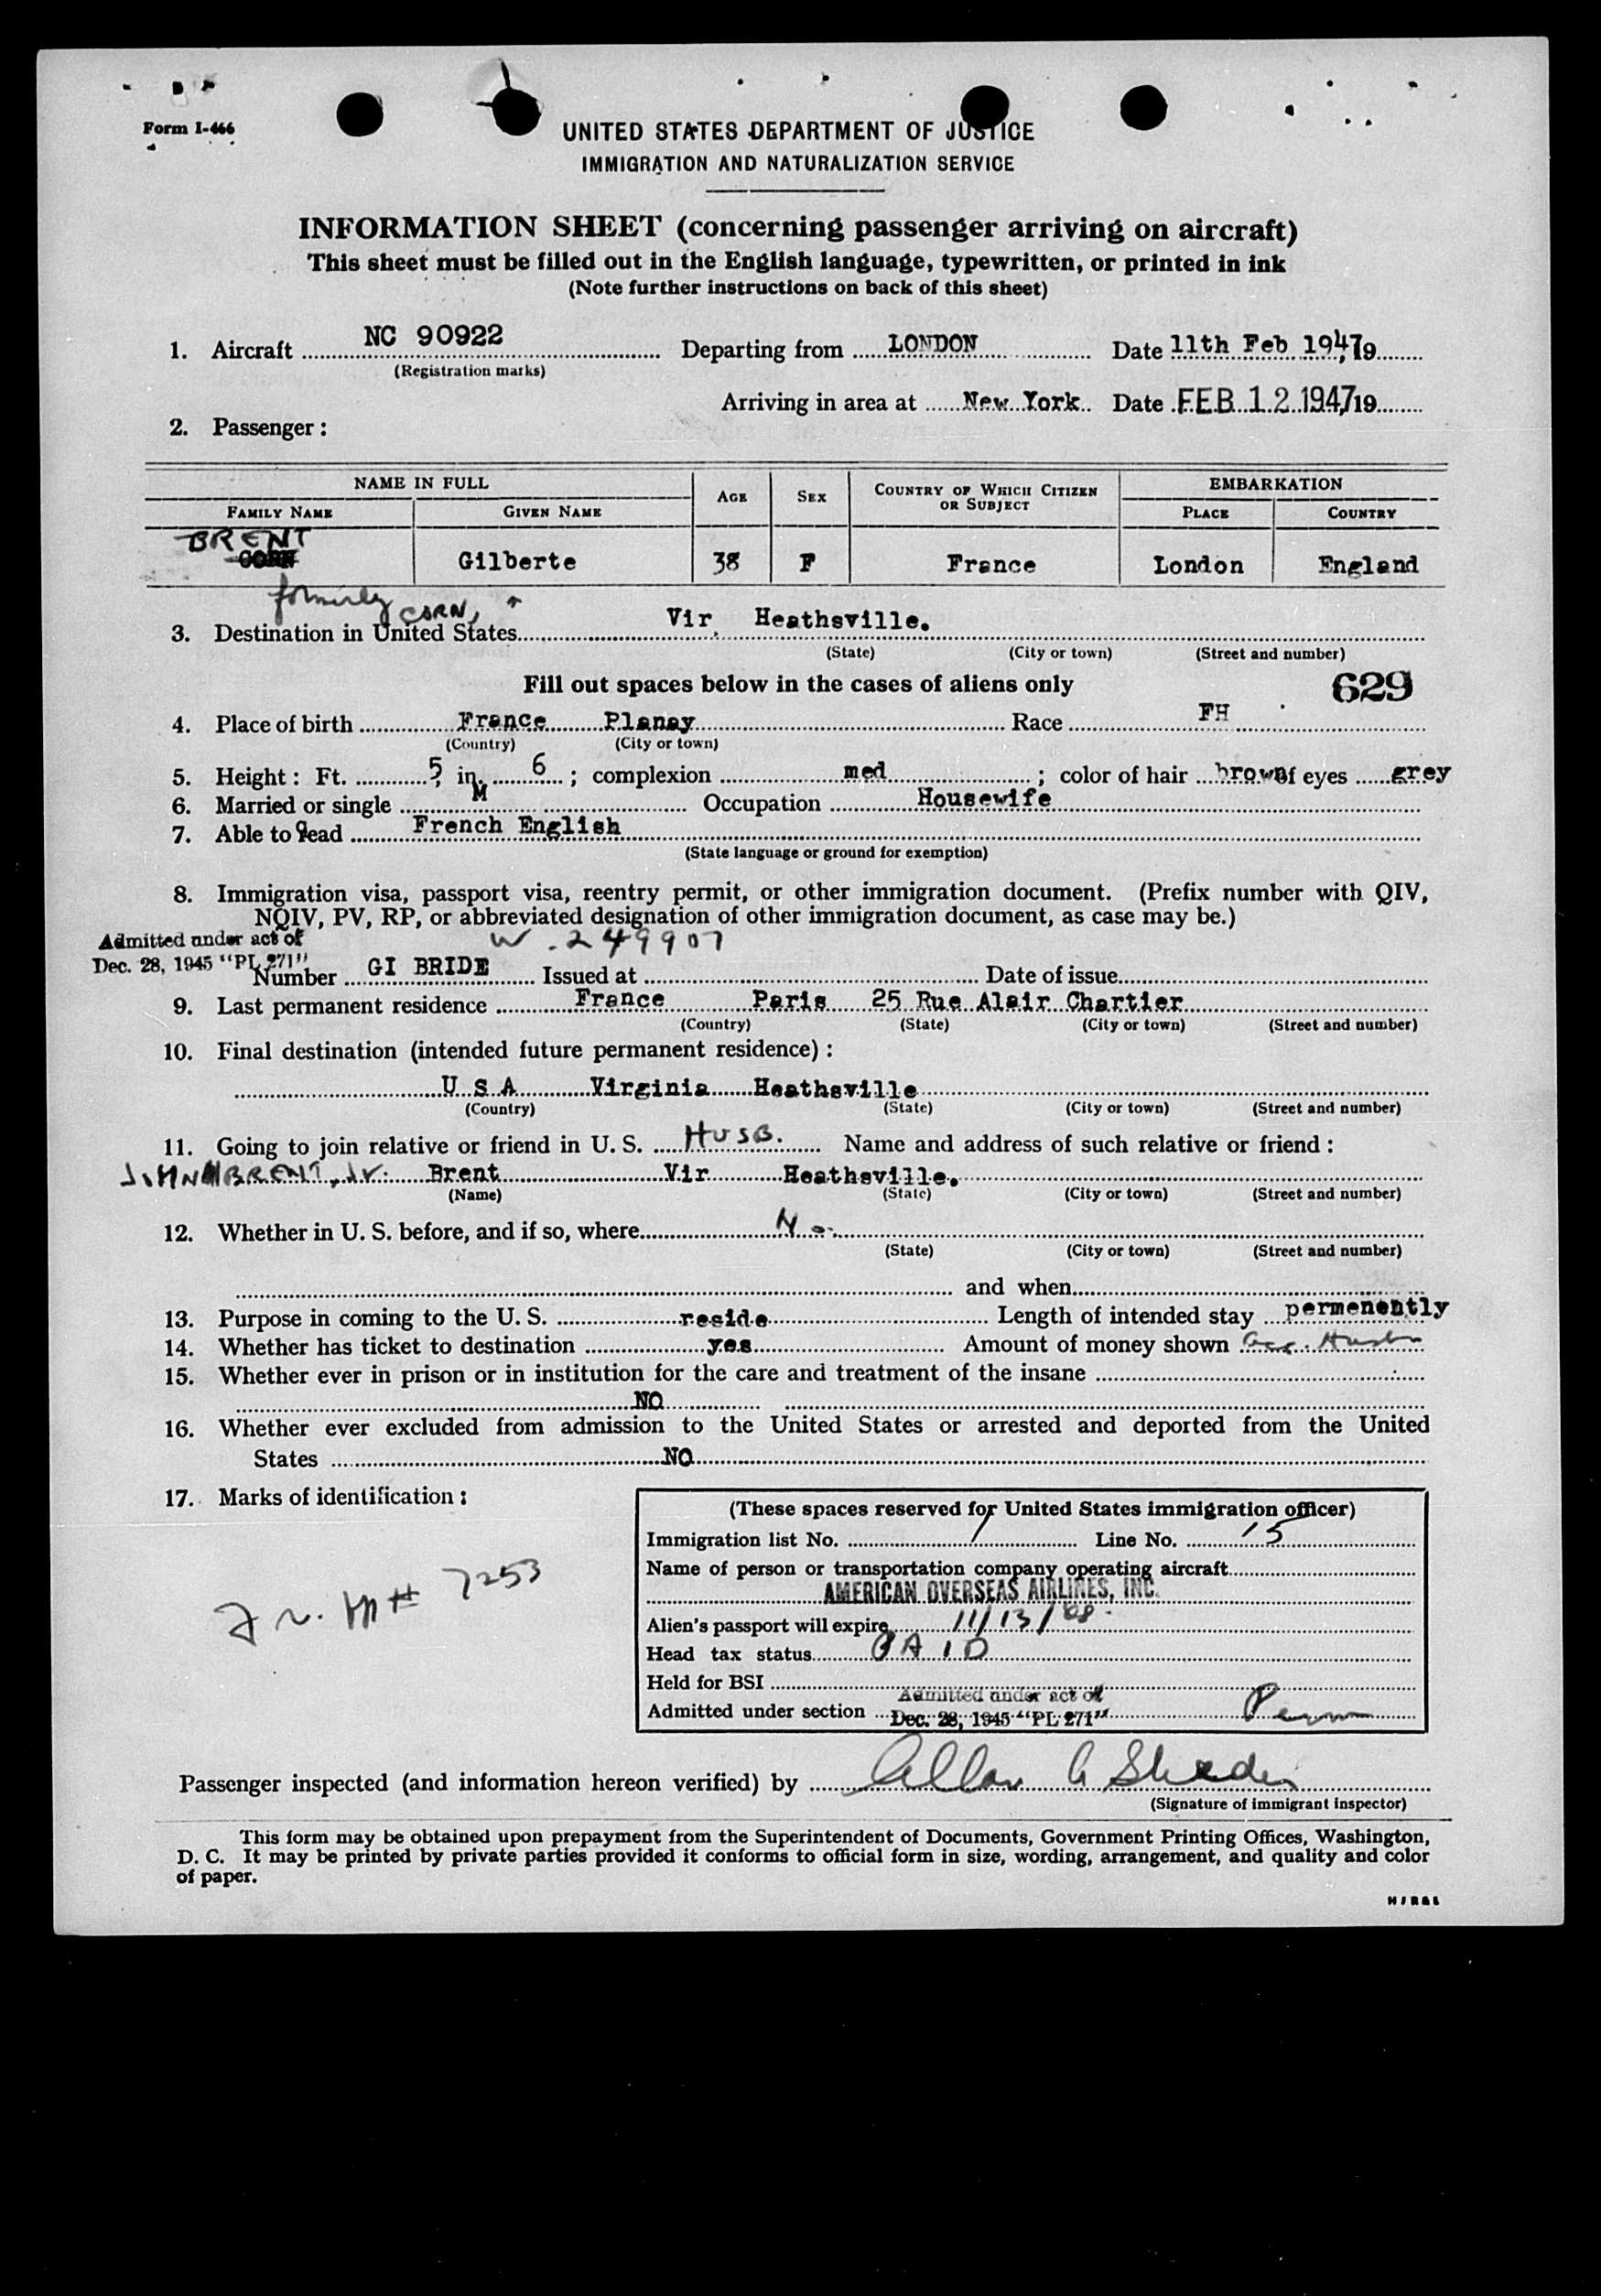 Form I-466
UNITED STATES DEPARTMENT OF JUSTICE
IMMIGRATION AND NATURALIZATION SERVICE
INFORMATION SHEET (concerning passenger arriving on aircraft)
This sheet must be filled out in the English language, typewritten, or printed in ink
(Note further instructions on back of this sheet)
1. Aircraft NC 90922 Departing from LONDON Date 11th Feb 1947 19
(Registration marks)
Arriving in area at New York Date FEB 12 1947 19
2. Passenger:
NAME IN FULL AGE SEX COUNTRY OF WHICH CITIZEN OR SUBJECT EMBARKATION
FAMILY NAME GIVEN NAME PLACE COUNTRY
BRENT
CORN Gilberte 38 F France London England
formerly CORN,
3. Destination in United States Vir Heathsville.
(State) (City or town) (Street and number)
Fill out spaces below in the cases of aliens only 629
4. Place of birth France Planay Race FH
(Country) (City or town)
5. Height: Ft. 5 in. 6; complexion med; color of hair brown of eyes grey
6. Married or single M Occupation Housewife
7. Able to read French English
(State language or ground for exemption)
8. Immigration visa, passport visa, reentry permit, or other immigration document. (Prefix number with QIV,
NQIV, PV, RP, or abbreviated designation of other immigration document, as case may be.)
Admitted under act of W-249907
Dec. 28, 1945 "PL 271"
Number GI BRIDE Issued at Date of issue
9. Last permanent residence France Paris 25 Rue Alair Chartier
(Country) (State) (City or town) (Street and number)
10. Final destination (intended future permanent residence):
U S A Virginia Heathsville
(Country) (State) (City or town) (Street and number)
11. Going to join relative or friend in U. S. HUSB. Name and address of such relative or friend:
JOHN H BRENT, Jr. Brent Vir Heathsville.
(Name) (State) (City or town) (Street and number)
12. Whether in U. S. before, and if so, where No.
(State) (City or town) (Street and number)
and when
13. Purpose in coming to the U. S. reside Length of intended stay permenently
14. Whether has ticket to destination yes Amount of money shown
15. Whether ever in prison or in institution for the care and treatment of the insane
NO
16. Whether ever excluded from admission to the United States or arrested and deported from the United
States NO
17. Marks of identification:
7253
(These spaces reserved for United States immigration officer)
Immigration list No. 1 Line No. 15
Name of person or transportation company operating aircraft
AMERICAN OVERSEAS AIRLINES, INC.
Alien's passport will expire 11/13/48.
Head tax status PAID
Held for BSI
Admitted under act of
Admitted under section Dec. 28, 1945 "PL 271" Perm
Passenger inspected (and information hereon verified) by
(Signature of immigrant inspector)
This form may be obtained upon prepayment from the Superintendent of Documents, Government Printing Offices, Washington,
D. C. It may be printed by private parties provided it conforms to official form in size, wording, arrangement, and quality and color
of paper.